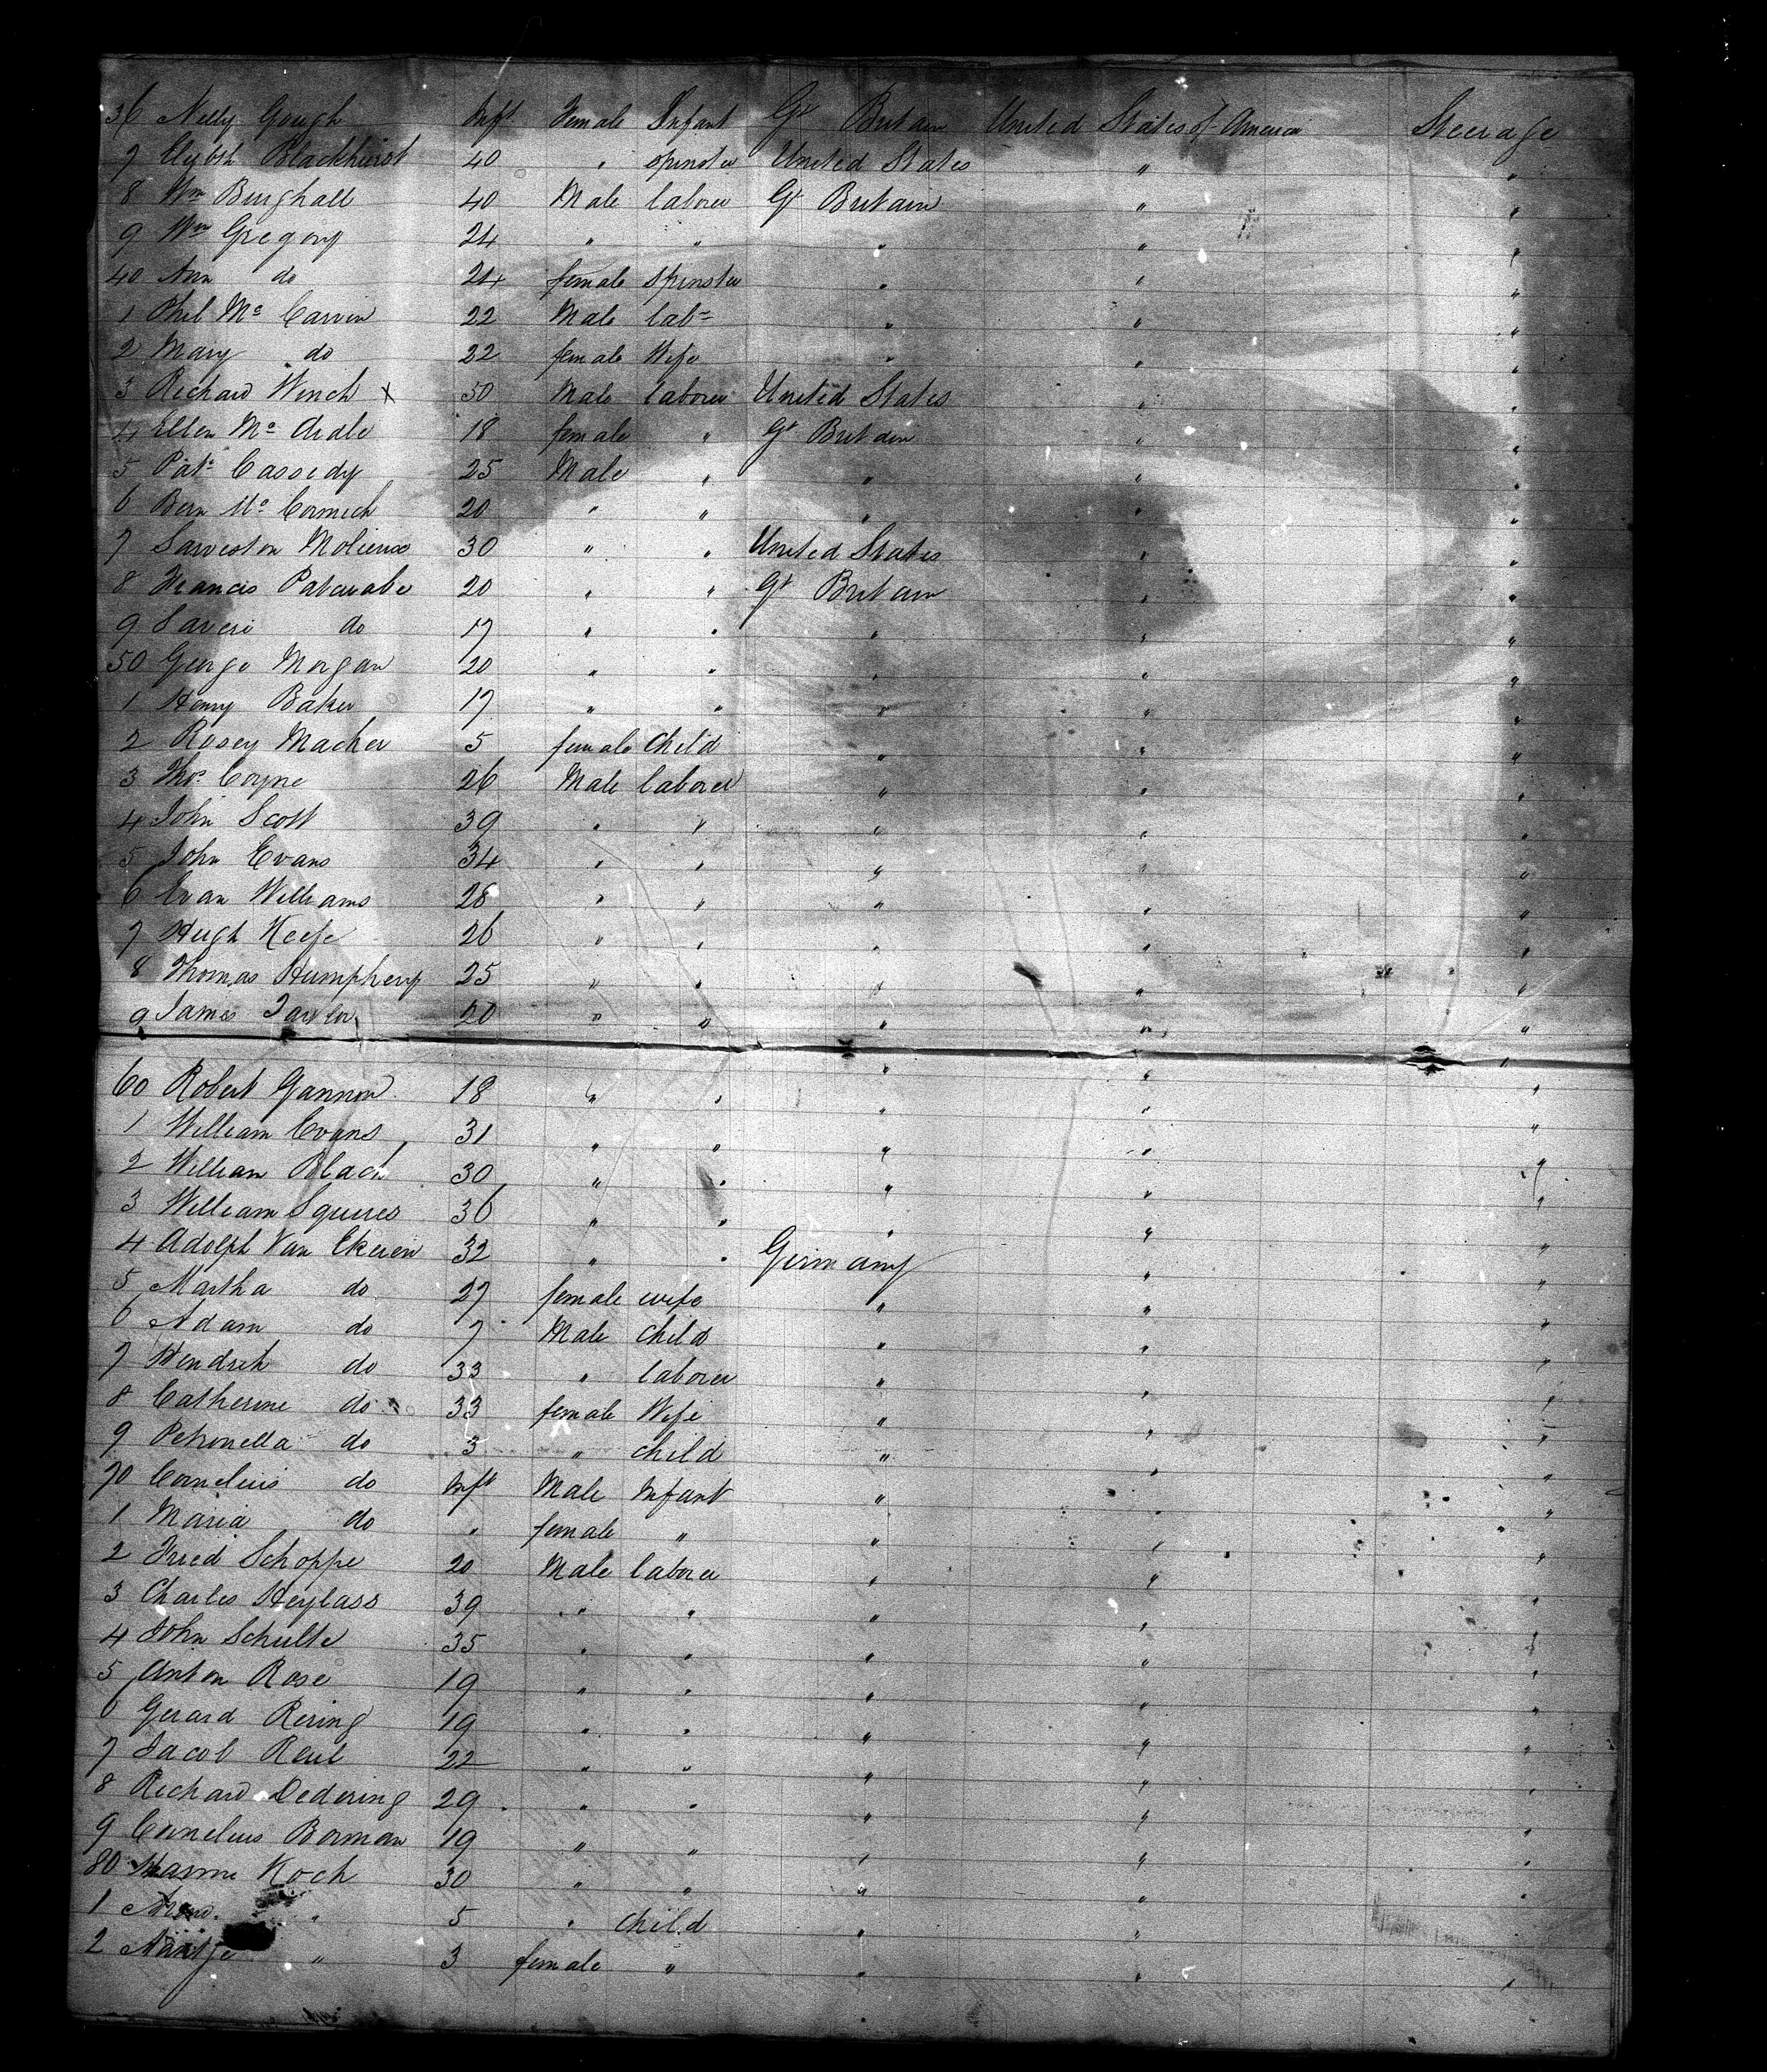 36 Nelly Gough Inft Female Infant Gt Britain United States of America Steerage
7 Elizbth Blackhurst 40 " spinster United States " "
8 Wm Burghall 40 Male laborer Gt Britain " "
9 Wm Gregory 24 " " " " "
40 Ann do 24 female spinster " " "
1 Phil Mc Carvin 22 Male labr " " "
2 Mary do 22 female Wife " " "
3 Richard Winch x 50 Male laborer United States " "
4 Ellen Mc Ardle 18 female " Gt Britain " "
5 Patk Cassedy 25 Male " " " "
6 Bern Mc Cormick 20 " " " " "
7 Sarveston Molieux 30 " " United States " "
8 Francis 20 " " Gt Britain " "
9 Saveri do 17 " " " " "
50 George Morgan 20 " " " " "
1 Henry Baker 17 " " " " "
2 Rosey Macher 5 female Child " " "
3 Thos Coyne 26 Male laborer " " "
4 John Scott 39 " " " " "
5 John Evans 34 " " " " "
6 Evan Williams 28 " " " " "
7 Hugh Keefe 26 " " " " "
8 Thomas Humphery 25 " " " " "
9 James Taylor 20 " " " " "
60 Robert Gannon 18 " " " " "
1 William Evans 31 " " " " "
2 William Black 30 " " " " "
3 William Squires 36 " " " " "
4 Adolph Van Ekeren 32 " " Germany " "
5 Martha do 27 female wife " " "
6 Adam do 7 Male Child " " "
7 Hendrik do 33 " laborer " " "
8 Catherine do 33 female Wife " " "
9 Petronella do 3 " child " " "
70 Cornelius do Inft Male Infant " " "
1 Maria do " female " " " "
2 Fried Schoppe 20 Male laborer " " "
3 Charles Heylass 39 " " " " "
4 John Schulte 35 " " " " "
5 Anton Rose 19 " " " " "
6 Gerard Rering 19 " " " " "
7 Jacob Reul 22 " " " " "
8 Richard Dedering 29 " " " " "
9 Cornelius Borman 19 " " " " "
80 Koch 30 " " " " "
1 " 5 " child " " "
2 Nantje " 3 female " " " "